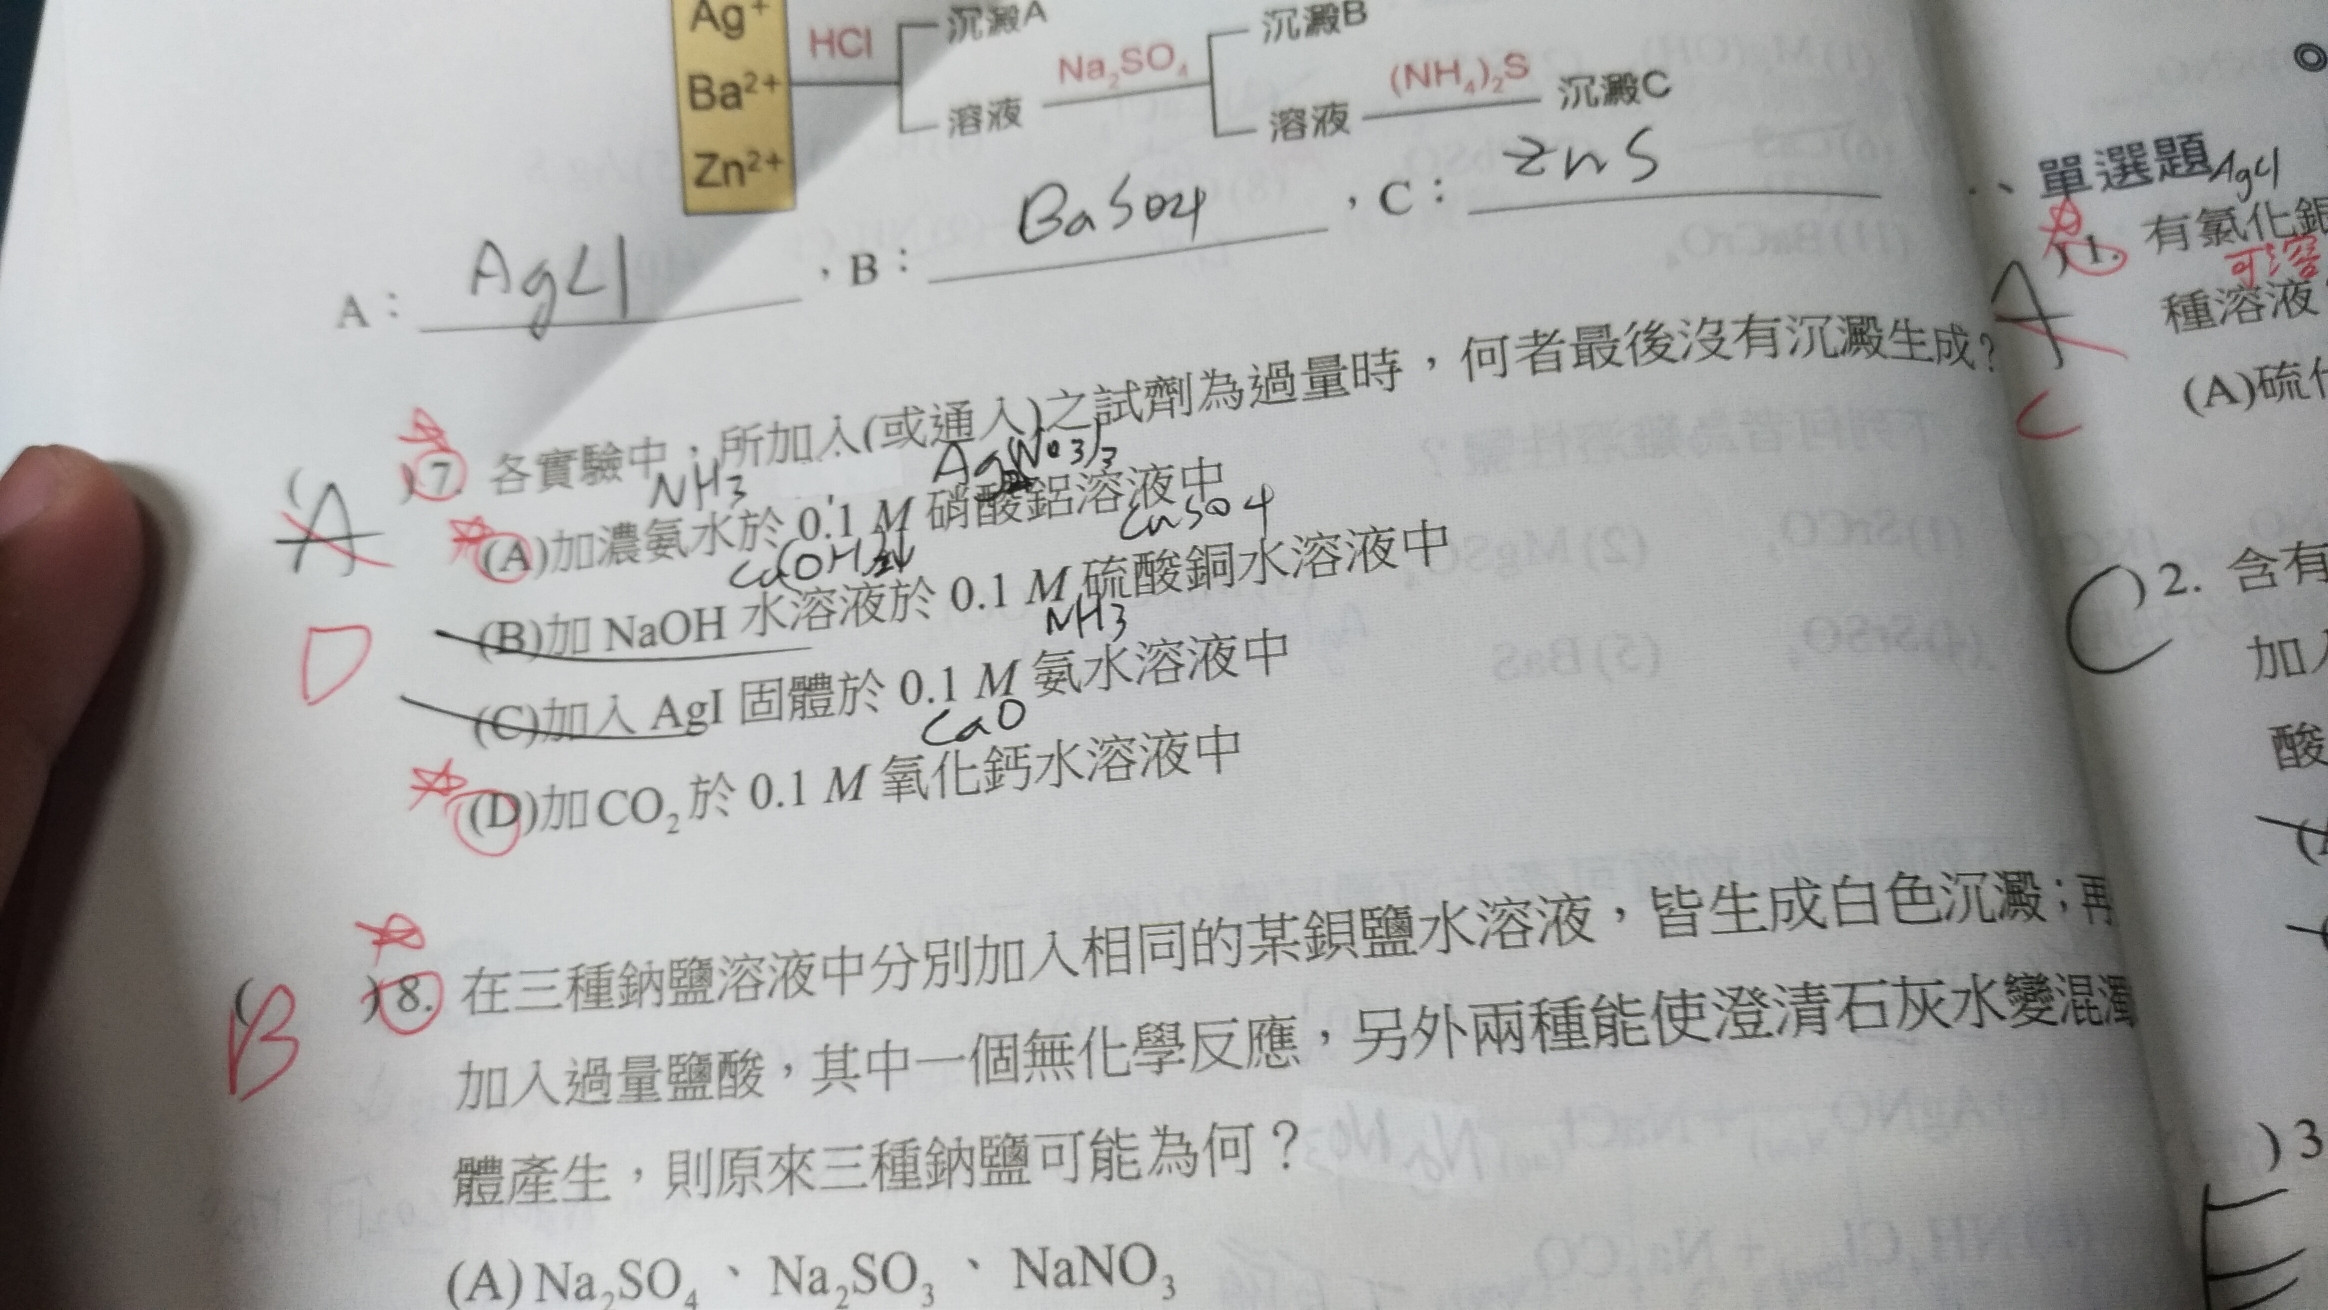 Ag⁺ HCl 沉澱A Na₂SO₄ 沉澱B
Ba²⁺ 溶液 溶液 (NH₄)₂S 沉澱C
Zn²⁺
A： AgCl ，B： BaSO4 ，C： ZnS
A
D
)7. 各實驗中，所加入(或通入)之試劑為過量時，何者最後沒有沉澱生成？
NH3
(A)加濃氨水於 0.1 M 硝酸鋁溶液中
CuSO4
(B)加 NaOH 水溶液於 0.1 M 硫酸銅水溶液中
NH3
(C)加入 AgI 固體於 0.1 M 氨水溶液中
CaO
(D)加CO₂於 0.1 M 氧化鈣水溶液中
B
( )8. 在三種鈉鹽溶液中分別加入相同的某鋇鹽水溶液，皆生成白色沉澱；再
加入過量鹽酸，其中一個無化學反應，另外兩種能使澄清石灰水變混濁
體產生，則原來三種鈉鹽可能為何？
(A) Na₂SO₄、Na₂SO₃、NaNO₃
、單選題 AgCl
)1. 有氯化銀
可溶
種溶液
A
C
(A)硫化
C
)2. 含有
加入
酸
)3
E